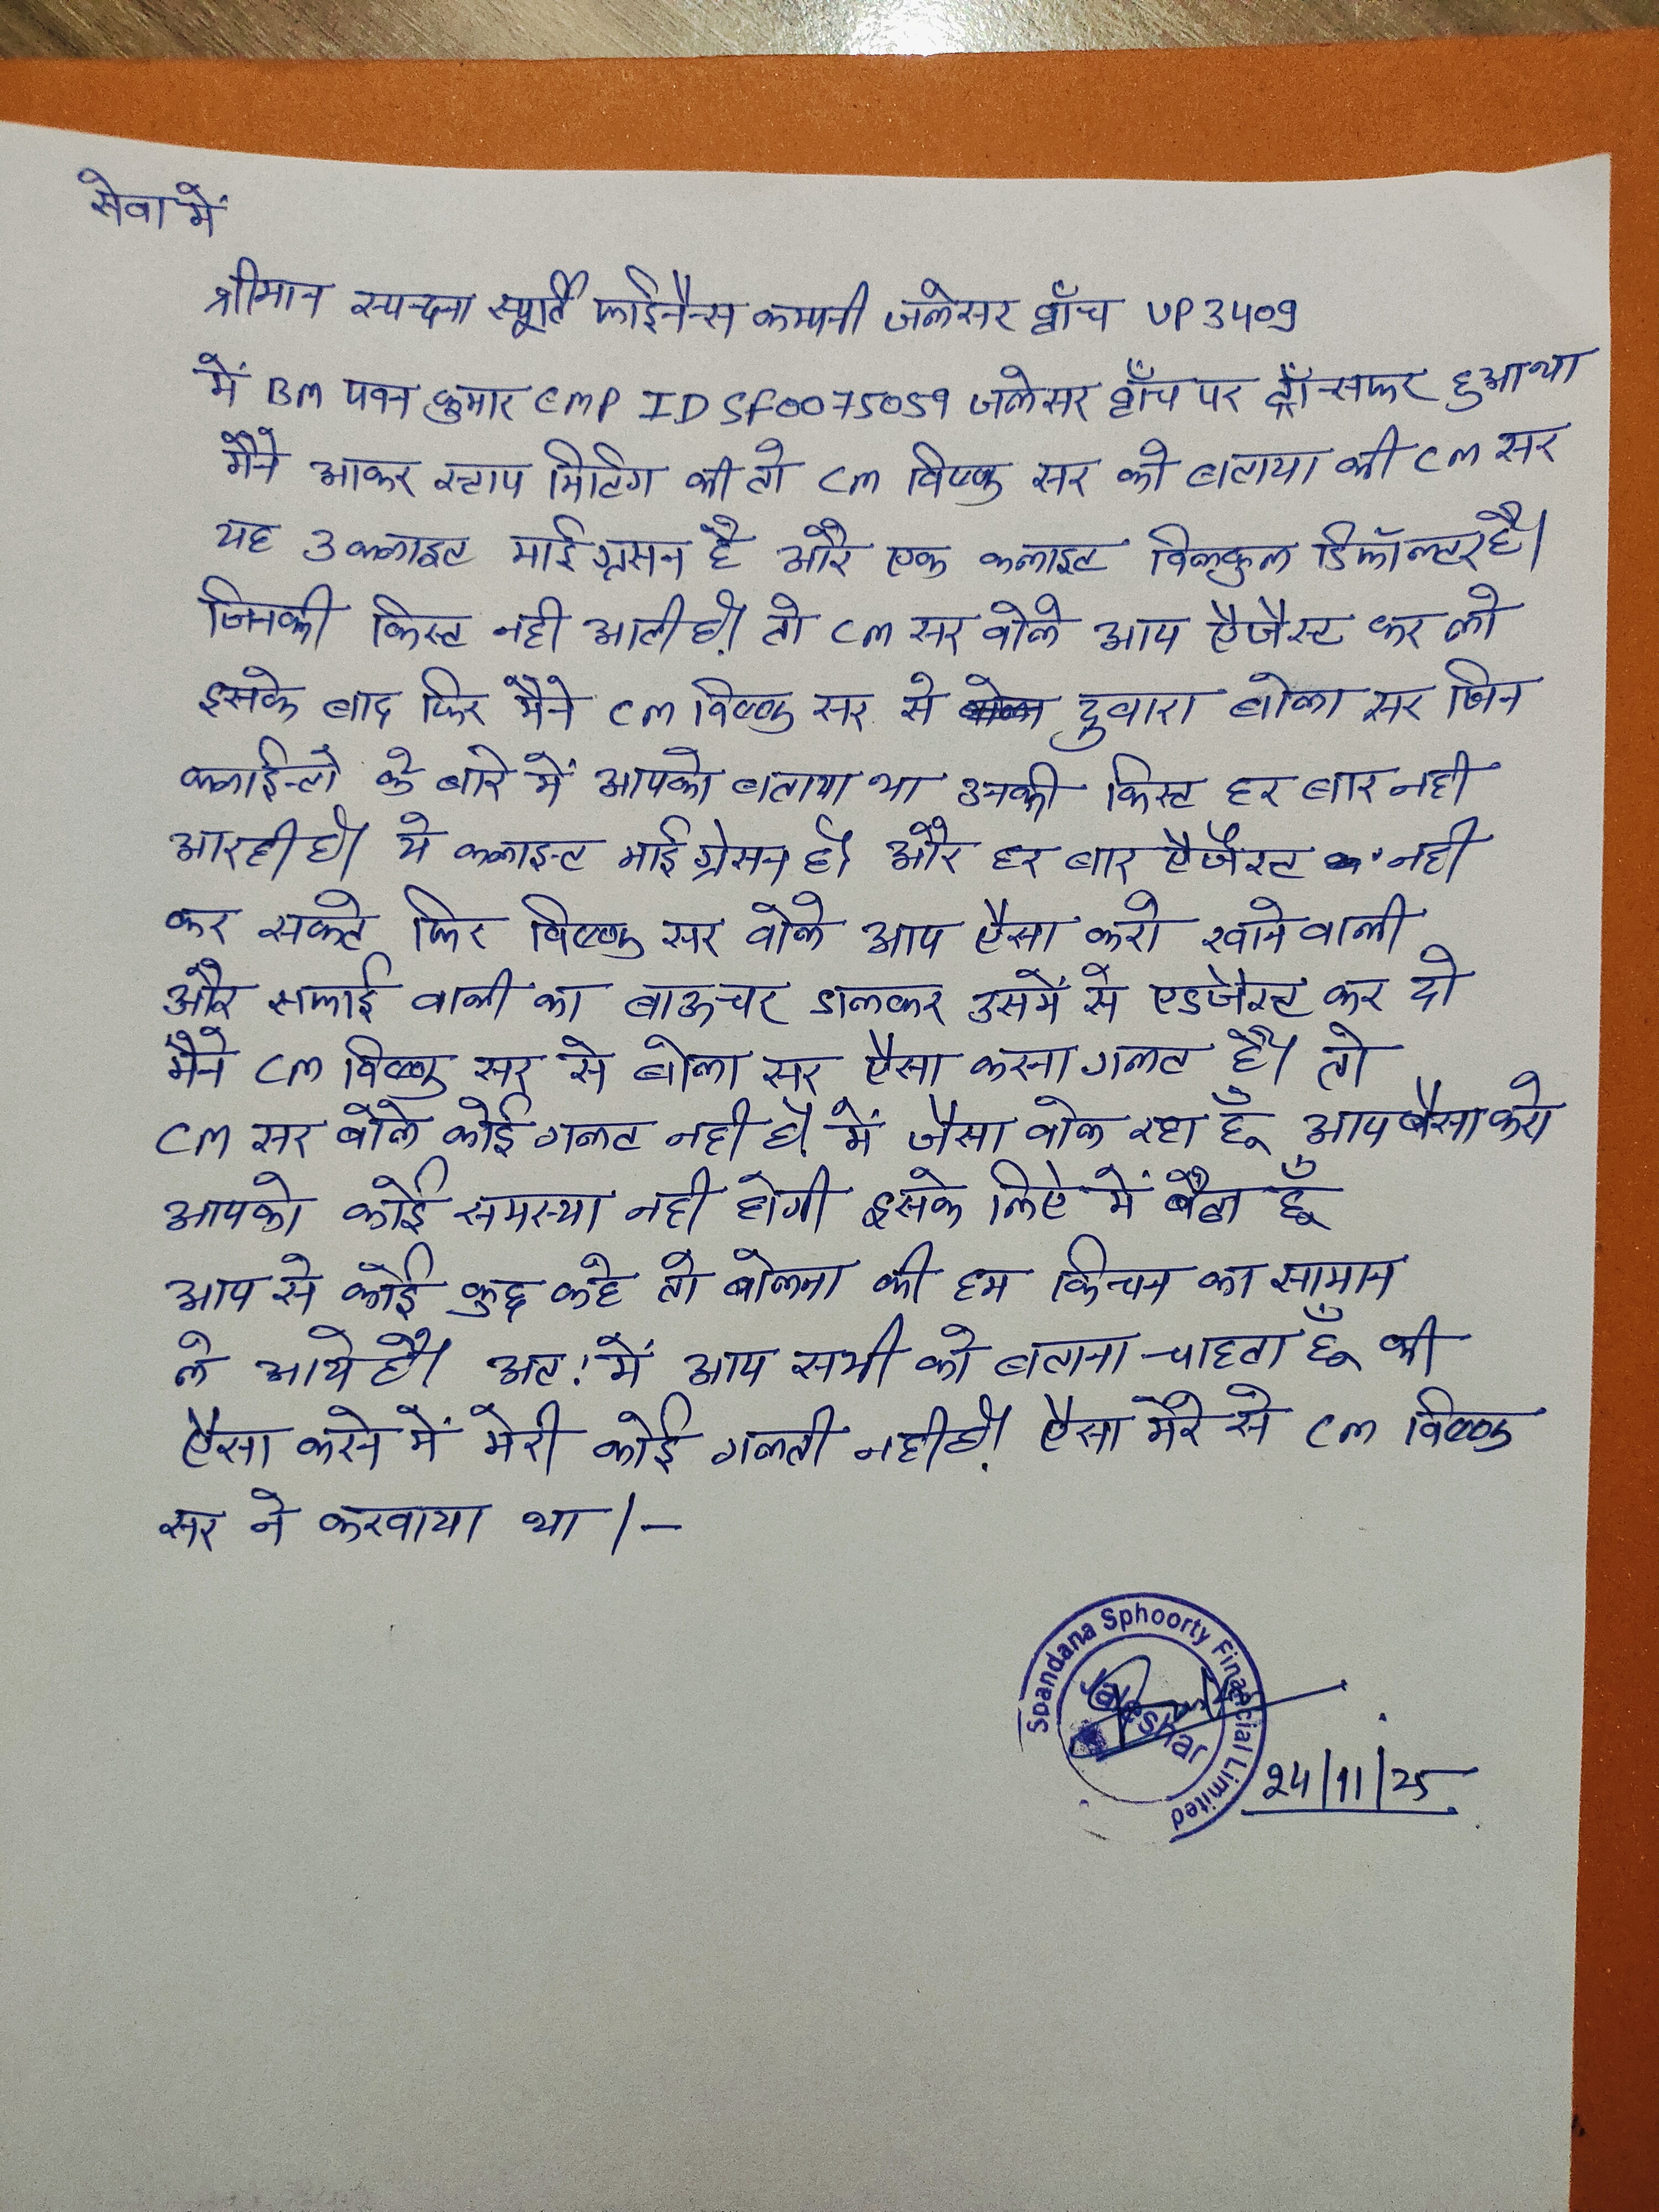 सेवा में
श्रीमान स्पन्दना स्फूर्ति फाईनैन्स कम्पनी जलेसर ब्राँच UP3409
में BM पवन कुमार EMP ID SF0075059 जलेसर ब्राँच पर ट्राँन्सफर हुआ था
मैंने आकर स्टाप मिटिंग की तो CM विष्णु सर को बताया की CM सर
यह 3 क्लाइट माईग्रसन है और एक क्लाइट विलकुल डिफॉल्टर है।
जिनकी किस्ट नही आती है। तो CM सर वोले आप ऐजैस्ट कर लो
इसके बाद फिर मैने CM विष्णु सर से दुवारा बोला सर जिन
क्लाईन्टो के बारे में आपको बताया था उनकी किस्ट हर बार नही
आरही है। ये क्लाइन्ट माईग्रेसन है। और हर बार ऐजैस्ट नही
कर सकते फिर विष्णु सर वोले आप ऐसा करो खाने वाली
और सफाई वाली का बाऊचर डालकर उसमें से एडजेस्ट कर दो
मैने CM विष्णु सर से बोला सर ऐसा करना गलत है। तो
CM सर बोले कोई गलट नही है। में जैसा वोल रहा हूँ आप बैसा करो
आपको कोई समस्या नही होगी इसके लिऐ में बैठा हूँ
आप से कोई कुछ कहे तो बोलना की हम किचन का सामान
ले आये है। अत: में आप सभी को बताना चाहता हूँ की
ऐसा करने में मेरी कोई गलती नही है। ऐसा मेरे से CM विष्णु
सर ने करवाया था।-
Spandana Sphoorty Financial Limited
Jaleshar
24/11/25